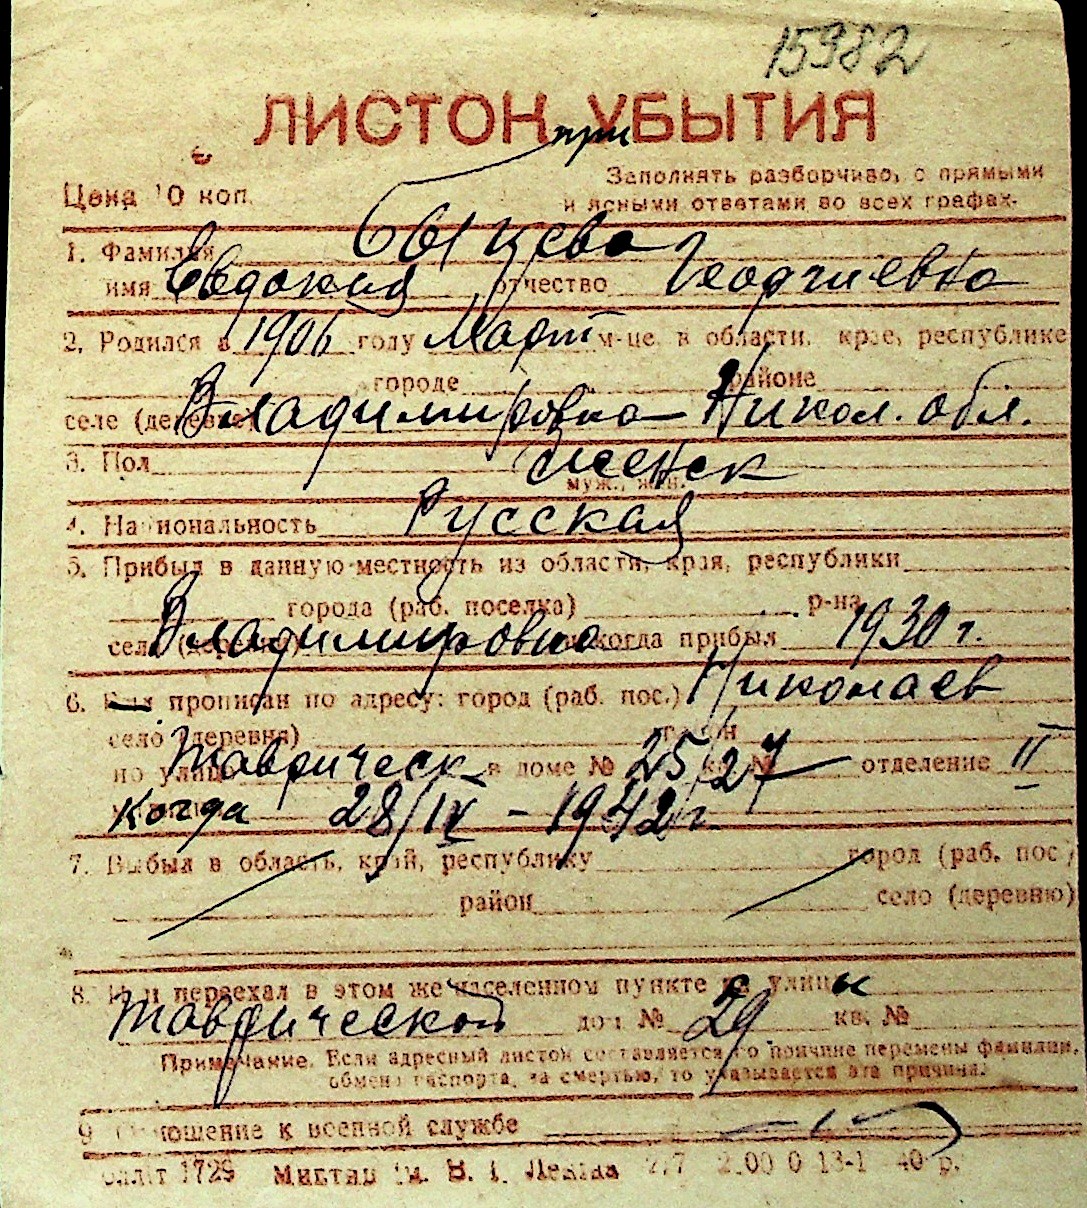 15982
ЛИСТОК УБЫТИЯ
при
Цена 10 коп.
Заполнять разборчиво, с прямыми
и ясными ответами во всех графах.
1. Фамилия
имя Евдокия отчество Георгиевна
2. Родился в 1906 году Март м-це, в области, крае, республике
городе районе
селе (деревне) Владимировка Никол. обл.
3. Пол женск
муж., жен.
4. Национальность Русская
5. Прибыл в данную местность из области, края, республики
города (раб. поселка) р-на
села (деревни) Владимировка и когда прибыл 1930 г.
6. Был прописан по адресу: город (раб. пос.) Николаев
село (деревня) район
по улице Таврическ в доме № 25/27 кв. № отделение II
Когда 28/IV - 1942 г.
7. Выбыл в область, край, республику город (раб. пос.)
район село (деревню)
8. Или переехал в этом же населенном пункте на улицы
Таврической дом № 29 кв. №
Примечание. Если адресный листок составляется по причине перемены фамилии,
обмена паспорта, за смертью, то указывается эта причина.
9. Отношение к военной службе
1729 им. В. И. Ленина 40 р.